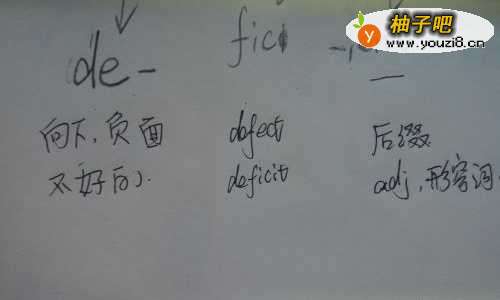 柚子吧
www.youzi8.cn
de- fici
向下、负面 defect 后缀
不好的. deficit adj,形容词.